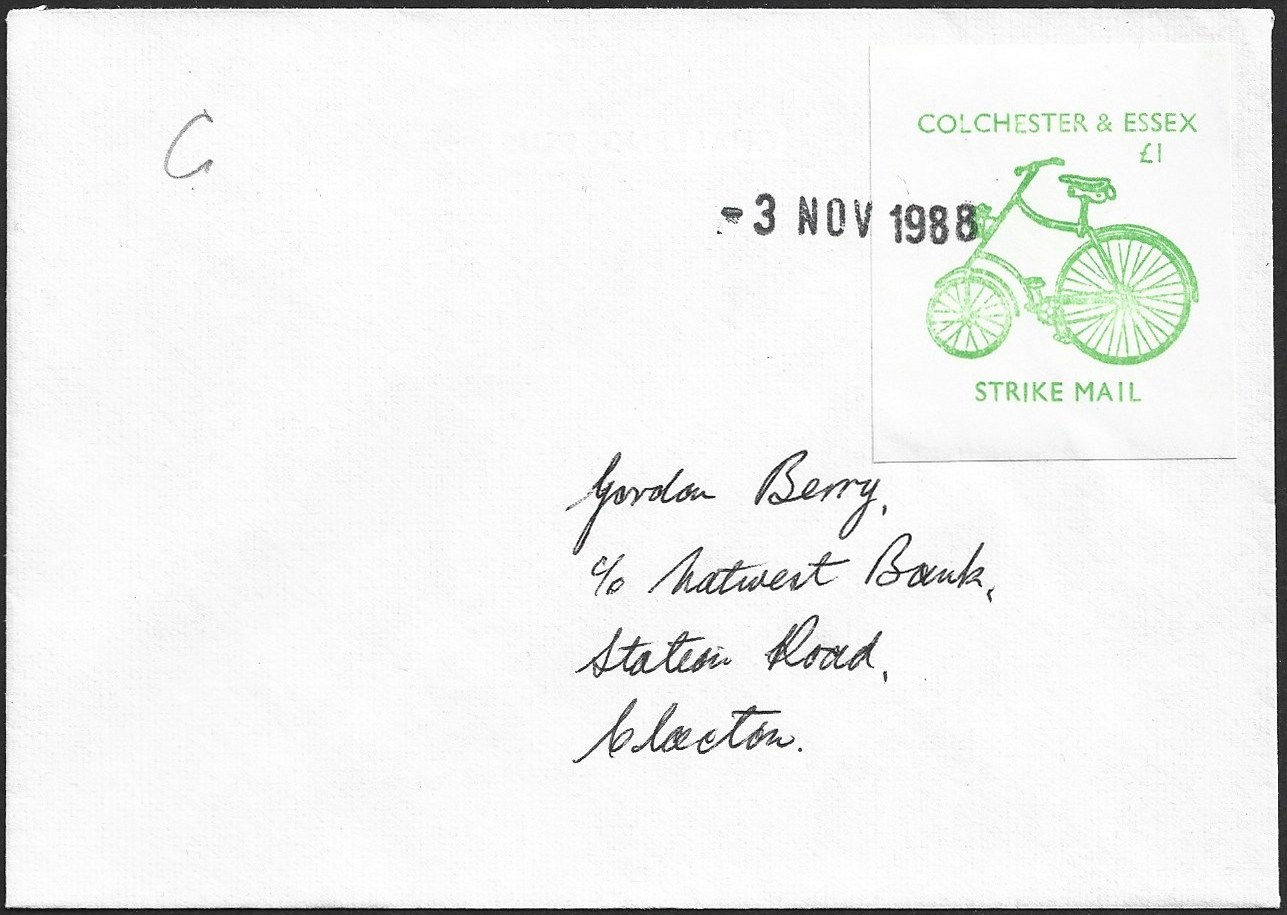 C
COLCHESTER & ESSEX
£1
-3 NOV 1988
STRIKE MAIL
Gordon Berry,
c/o Natwest Bank,
Station Road,
Clacton.